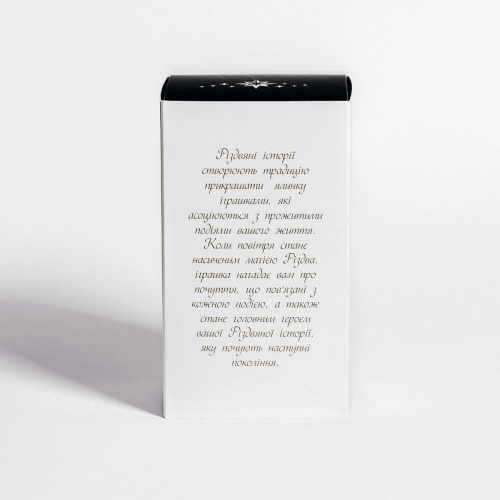 Різдвяні історії
створюють традицію
прикрашати ялинку
іграшками, які
асоціюються з прожитими
подіями вашого життя.
Коли повітря стане
насиченим магією Різдва,
іграшка нагадає вам про
почуття, що пов'язані з
кожною подією, а також
стане головним героєм
вашої Різдвяної історії,
яку почують наступні
покоління.